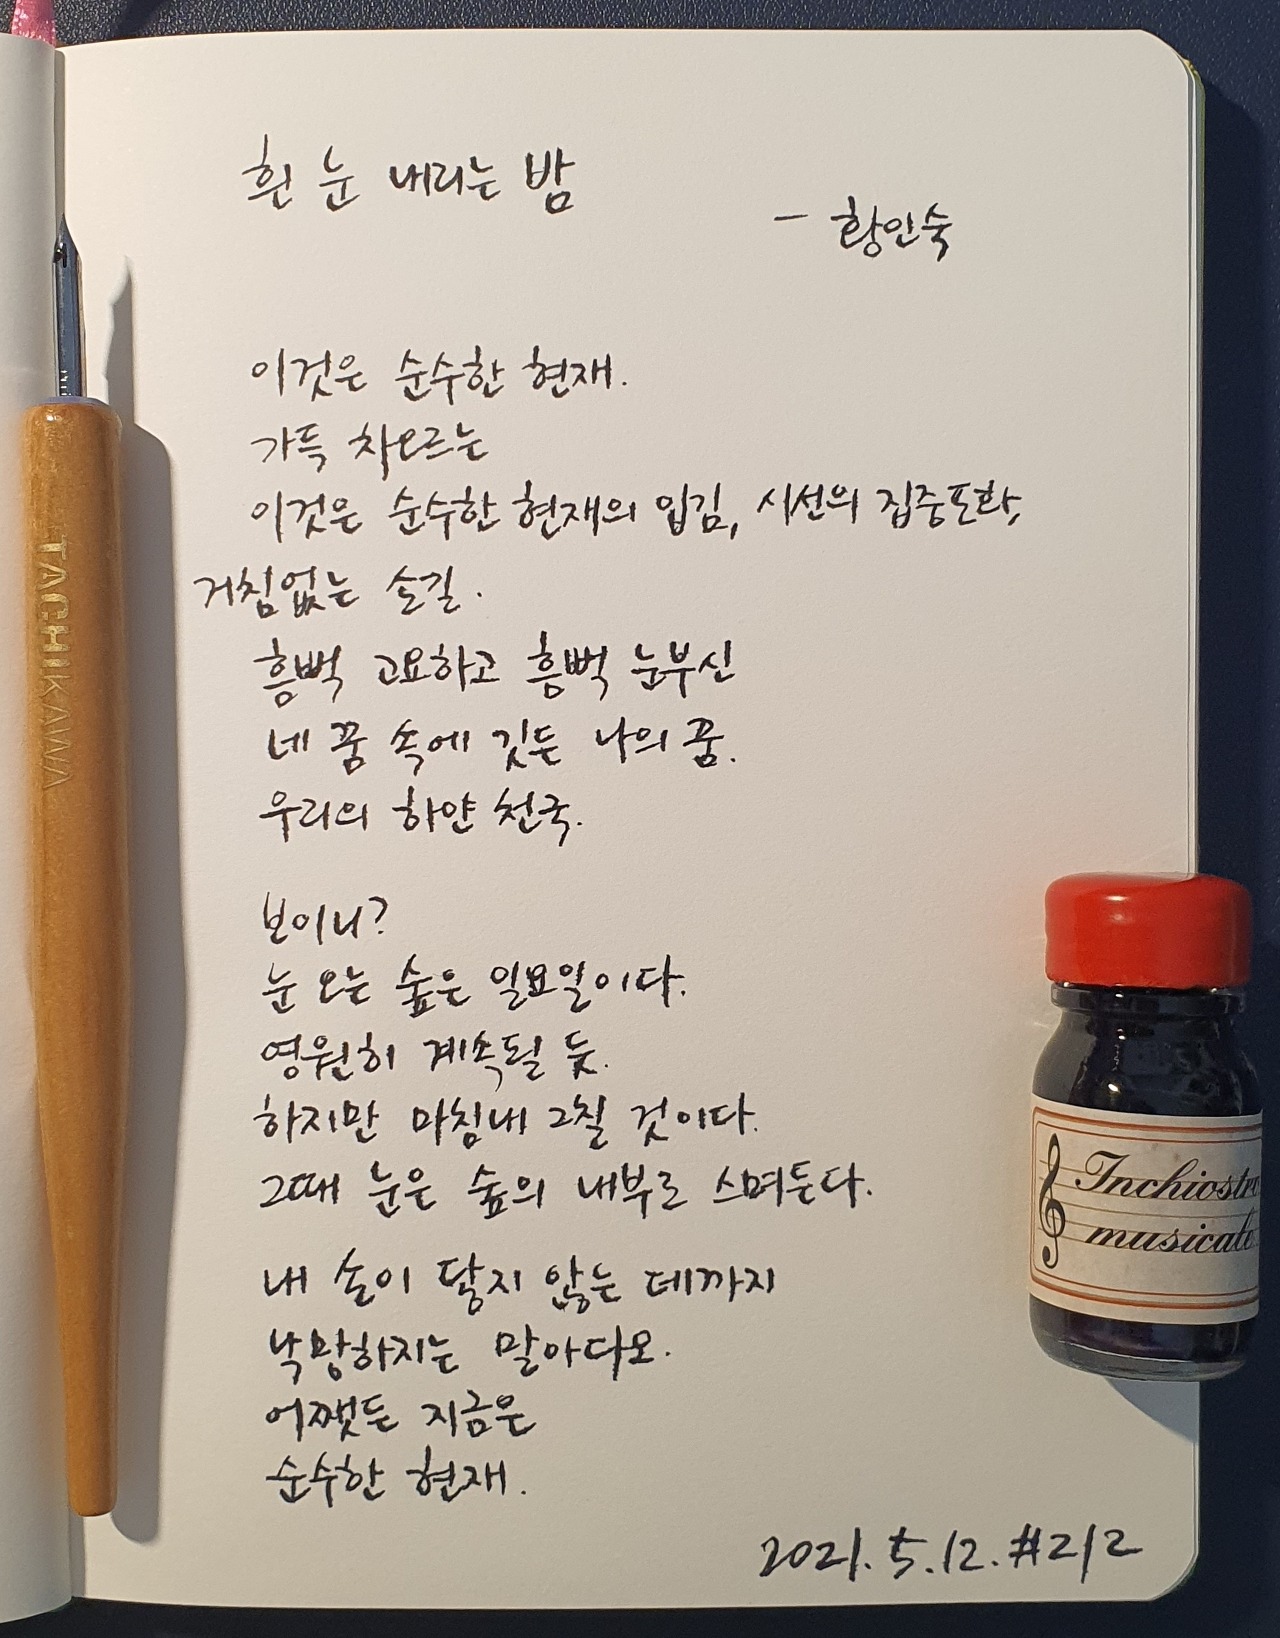 흰 눈 내리는 밤
- 황인숙
이것은 순수한 현재.
가득 차오르는
이것은 순수한 현재의 입김, 시선의 집중포화,
거침없는 손길.
흠뻑 고요하고 흠뻑 눈부신
네 꿈 속에 깃든 나의 꿈.
우리의 하얀 천국.
보이니?
눈 오는 숲은 일요일이다.
영원히 계속될 듯.
하지만 마침내 그칠 것이다.
그때 눈은 숲의 내부로 스며든다.
내 손이 닿지 않는 데까지
낙망하지는 말아다오.
어쨌든 지금은
순수한 현재.
2021. 5. 12. #212
TACHIKAWA
Inchiostro
musicale